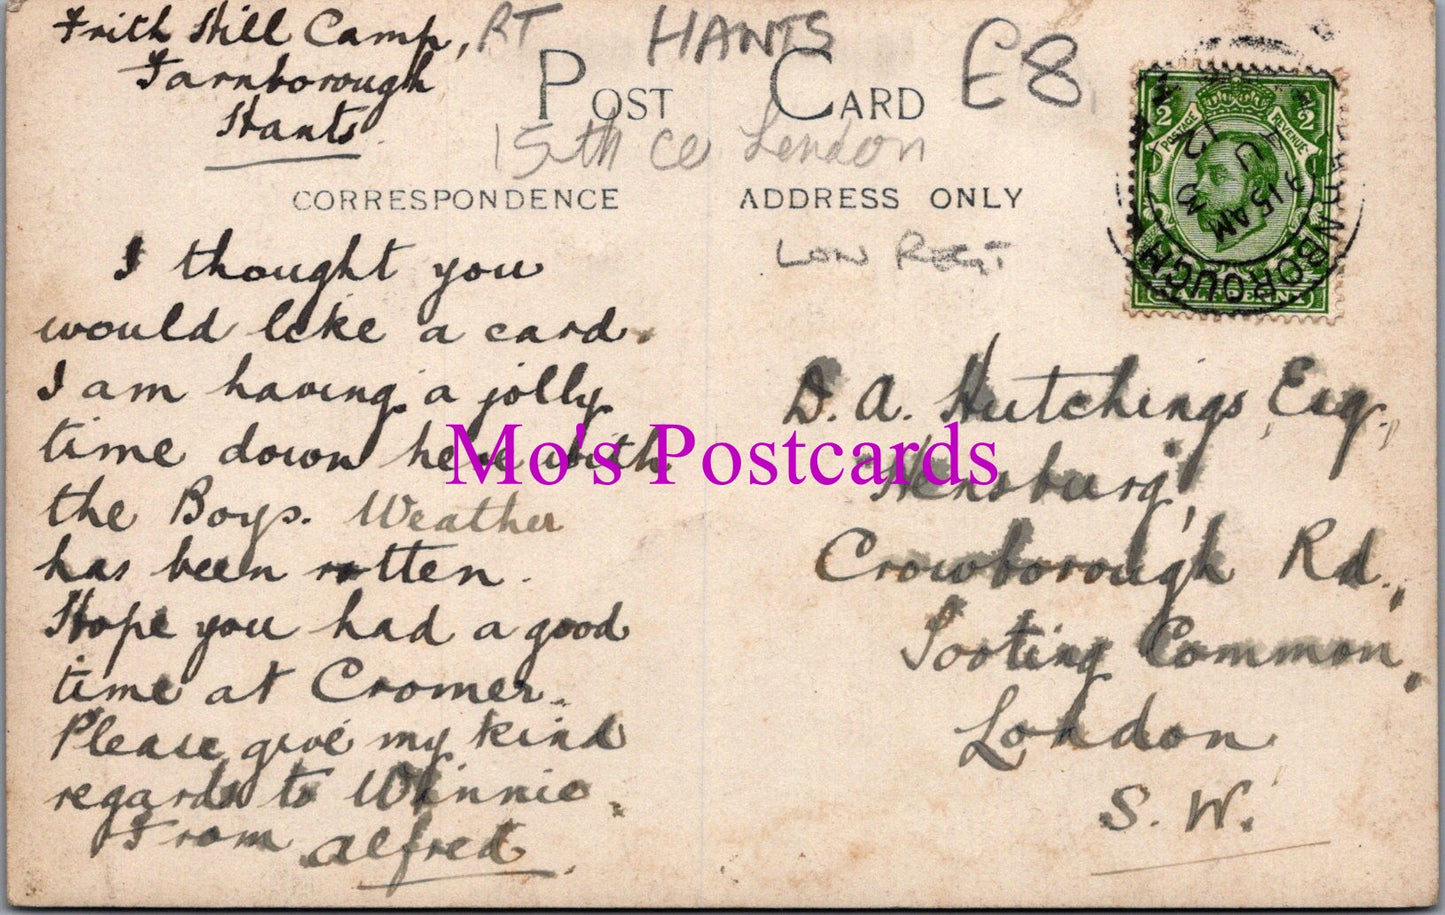 Frith Hill Camp,
Farnborough
Hants.
RT HANTS £8
POST CARD
15th London
CORRESPONDENCE
ADDRESS ONLY
I thought you
would like a card.
I am having a jolly
time down here with
the Boys. Weather
has been rotten.
Hope you had a good
time at Cromer.
Please give my kind
regards to Winnie.
From Alfred
D. A. Hutchings, Esq.,
Crowborough Rd.,
Tooting Common,
London
S. W.
1/2 1/2
POSTAGE REVENUE
HALFPENNY
FARNBOROUGH
9 15 AM
12
Mo's Postcards